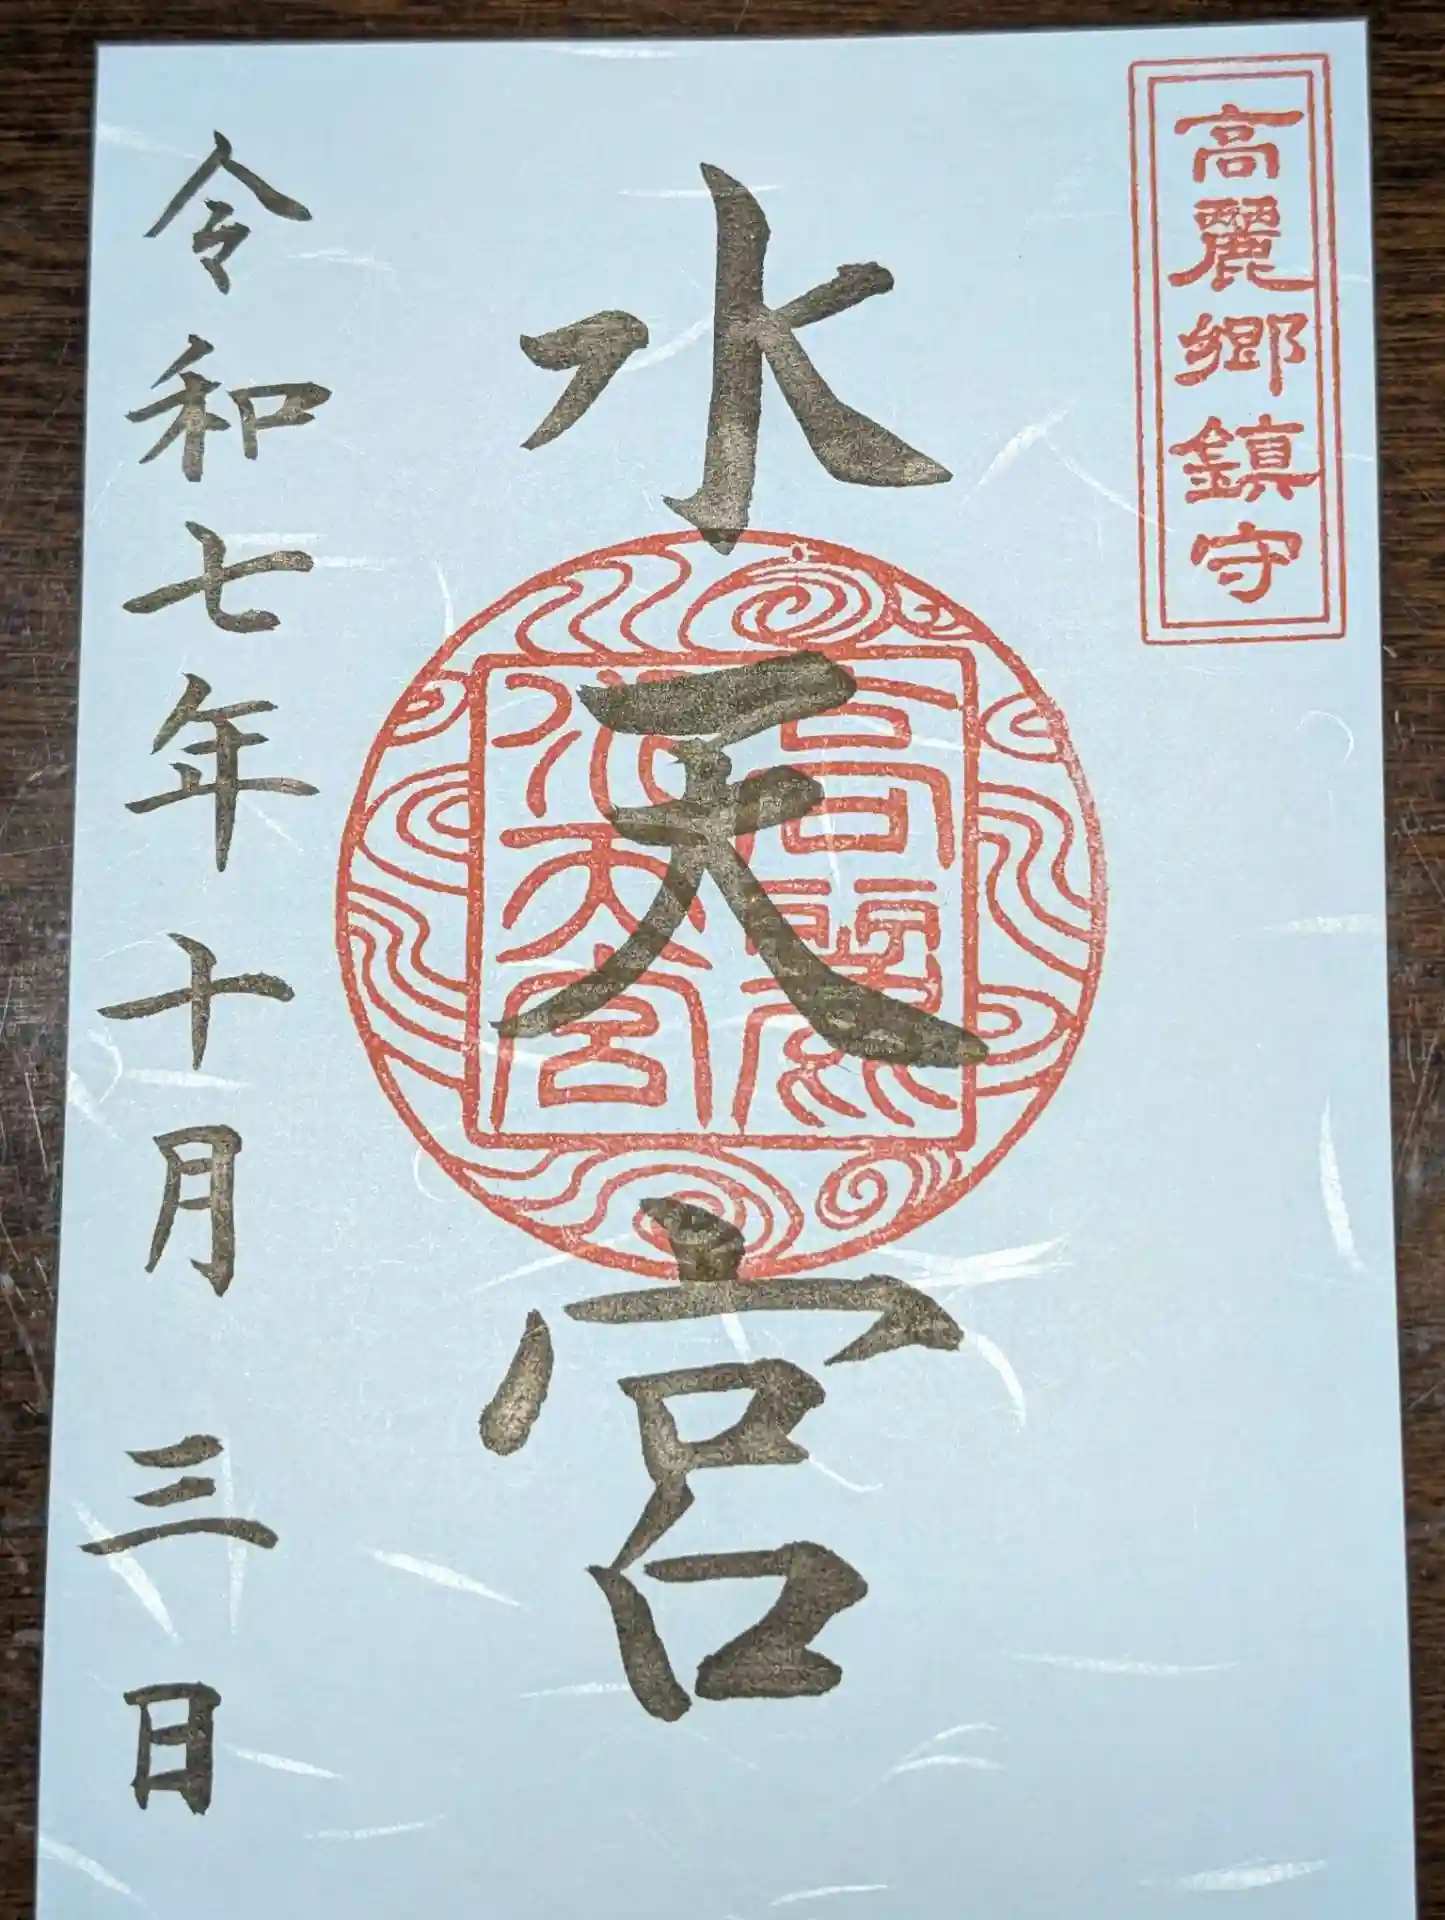 高麗郷鎮守
水天宮
高麗
水天宮
令和七年十月三日